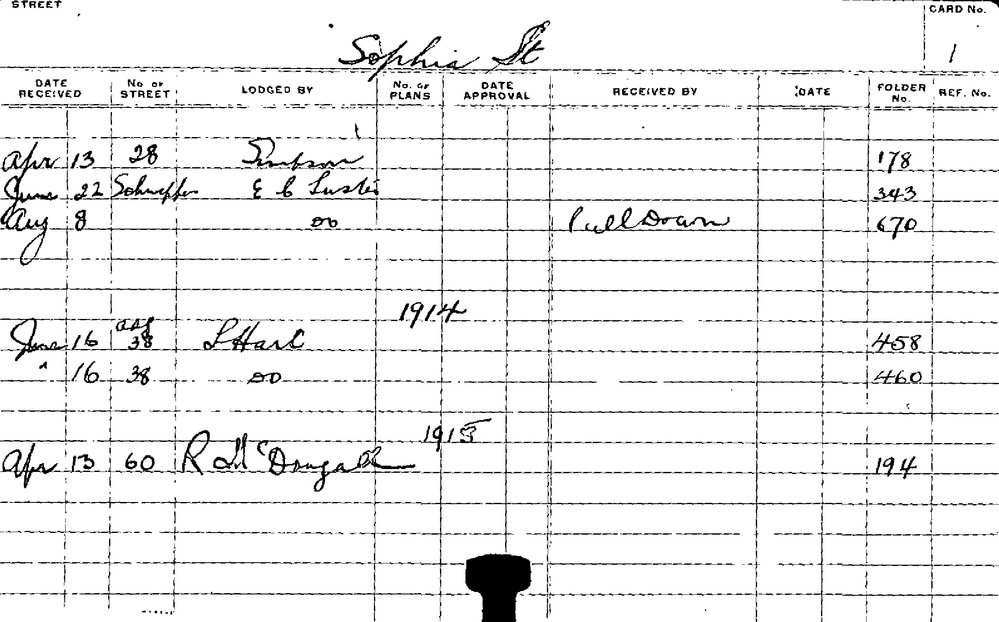 STREET Sophia St CARD No. 1
DATE RECEIVED No OF STREET LODGED BY No. OF PLANS DATE APPROVAL RECEIVED BY DATE FOLDER No. REF. No.
Apr 13 28 Simpson 178
June 22 Schweppes E C 343
Aug 8 do Pull Down 670
1914
June 16 adj 38 L Hart 458
" 16 38 do 460
1915
Apr 13 60 R McDougall 194